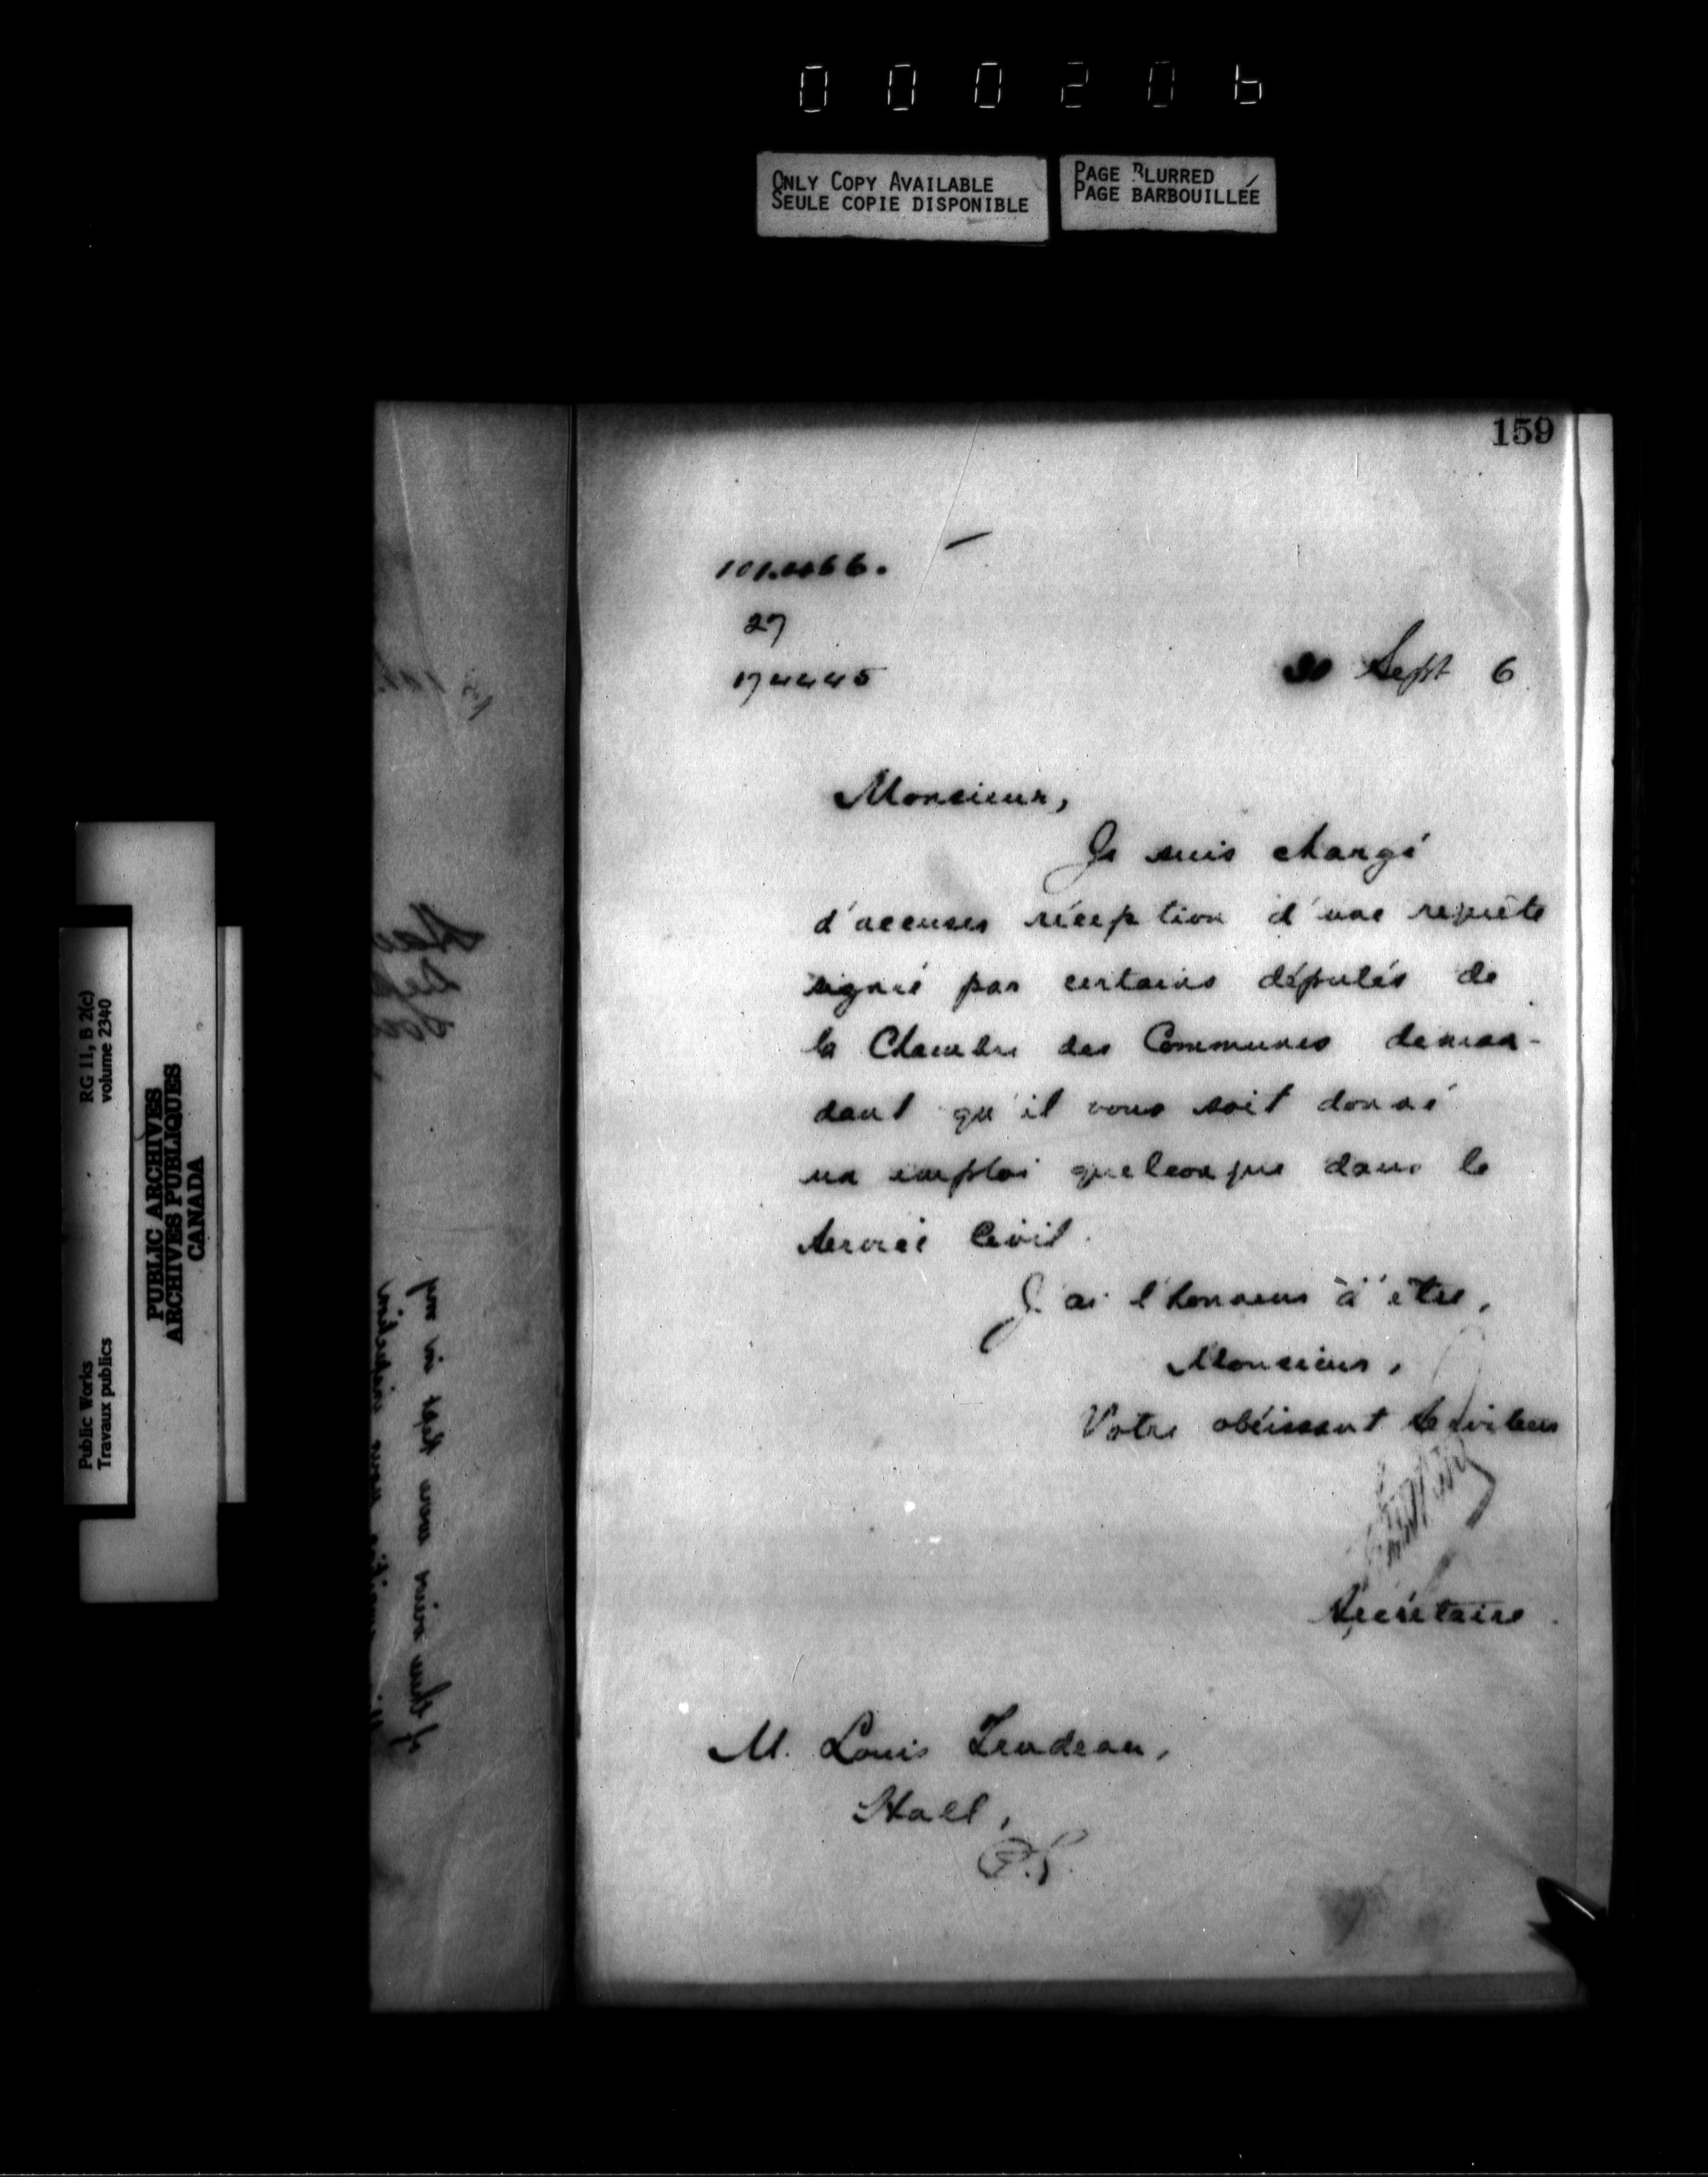 000206
ONLY COPY AVAILABLE
SEULE COPIE DISPONIBLE
PAGE BLURRED
PAGE BARBOUILLÉE
159
27
174445
Sept 6
Monsieur,
Je suis chargé
d'accuser réception d'une requête
signé par certains députés de
la Chambre des Communes deman-
dant qu'il vous soit donné
un emploi quelconque dans le
Service Civil.
J'ai l'honneur d'être,
Monsieur,
Votre obéissant Serviteur
Secrétaire.
M. Louis Trudeau,
Hull,
P.Q.
Public Works
Travaux publics
RG 11, B 2(c)
volume 2340
PUBLIC ARCHIVES
ARCHIVES PUBLIQUES
CANADA